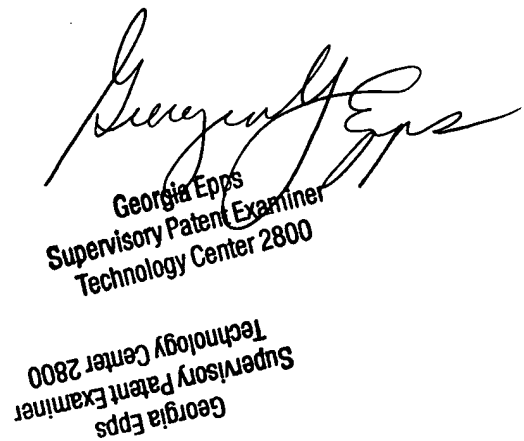 Georgia Y Epps
Georgia Epps
Supervisory Patent Examiner
Technology Center 2800
Georgia Epps
Supervisory Patent Examiner
Technology Center 2800